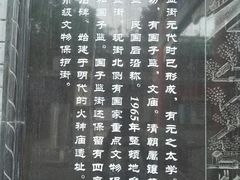 监街元时已形成，有元之太学
，有国子监，文庙。清朝属镶
，民国后沿称。1965年整顿地名
监街。现街北侧有国家重点文物保
监。国子监街还保留有四
碑，始建于明代的火神庙遗址。
市级文物保护街。